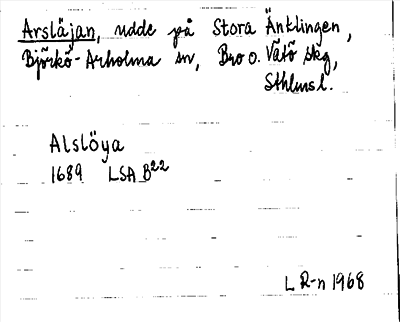 Arsläjan, udde på Stora Änklingen,
Björkö-Arholma sn, Bro o. Vätö skg,
Sthlms l.
Alslöya
1689 LSA B22
L R-n 1968